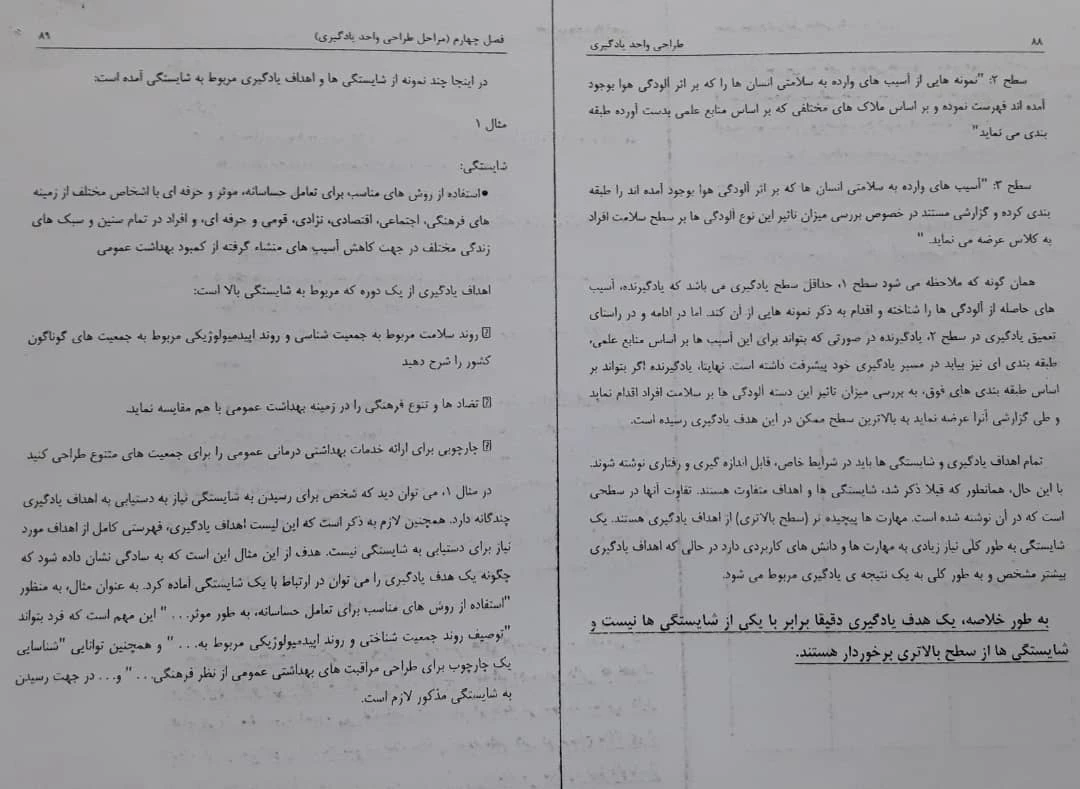 ۸۸ طراحی واحد یادگیری
سطح ۲: "نمونه هایی از آسیب های وارده به سلامتی انسان ها را که بر اثر آلودگی هوا بوجود
آمده اند فهرست نموده و بر اساس ملاک های مختلفی که بر اساس منابع علمی بدست آورده طبقه
بندی می نماید"
سطح ۳: "آسیب های وارده به سلامتی انسان ها که بر اثر آلودگی هوا بوجود آمده اند را طبقه
بندی کرده و گزارشی مستند در خصوص بررسی میزان تاثیر این نوع آلودگی ها بر سطح سلامت افراد
به کلاس عرضه می نماید. "
همان گونه که ملاحظه می شود سطح ۱، حداقل سطح یادگیری می باشد که یادگیرنده، آسیب
های حاصله از آلودگی ها را شناخته و اقدام به ذکر نمونه هایی از آن کند. اما در ادامه و در راستای
تعمیق یادگیری در سطح ۲، یادگیرنده در صورتی که بتواند برای این آسیب ها بر اساس منابع علمی،
طبقه بندی ای نیز بیابد در مسیر یادگیری خود پیشرفت داشته است. نهایتا، یادگیرنده اگر بتواند بر
اساس طبقه بندی های فوق، به بررسی میزان تاثیر این دسته آلودگی ها بر سلامت افراد اقدام نماید
و طی گزارشی آنرا عرضه نماید به بالاترین سطح ممکن در این هدف یادگیری رسیده است.
تمام اهداف یادگیری و شایستگی ها باید در شرایط خاص، قابل اندازه گیری و رفتاری نوشته شوند.
با این حال، همانطور که قبلا ذکر شد، شایستگی ها و اهداف متفاوت هستند. تفاوت آنها در سطحی
است که در آن نوشته شده است. مهارت ها پیچیده تر (سطح بالاتری) از اهداف یادگیری هستند. یک
شایستگی به طور کلی نیاز زیادی به مهارت ها و دانش های کاربردی دارد در حالی که اهداف یادگیری
بیشتر مشخص و به طور کلی به یک نتیجه ی یادگیری مربوط می شود.
به طور خلاصه، یک هدف یادگیری دقیقا برابر با یکی از شایستگی ها نیست و
شایستگی ها از سطح بالاتری برخوردار هستند.
فصل چهارم (مراحل طراحی واحد یادگیری) ۸۹
در اینجا چند نمونه از شایستگی ها و اهداف یادگیری مربوط به شایستگی آمده است:
مثال ۱
شایستگی:
●استفاده از روش های مناسب برای تعامل حساسانه، موثر و حرفه ای با اشخاص مختلف از زمینه
های فرهنگی، اجتماعی، اقتصادی، نژادی، قومی و حرفه ای، و افراد در تمام سنین و سبک های
زندگی مختلف در جهت کاهش آسیب های منشاء گرفته از کمبود بهداشت عمومی
اهداف یادگیری از یک دوره که مربوط به شایستگی بالا است:
روند سلامت مربوط به جمعیت شناسی و روند اپیدمیولوژیکی مربوط به جمعیت های گوناگون
کشور را شرح دهید
تضاد ها و تنوع فرهنگی را در زمینه بهداشت عمومی با هم مقایسه نماید.
چارچوبی برای ارائه خدمات بهداشتی درمانی عمومی را برای جمعیت های متنوع طراحی کنید
در مثال ۱، می توان دید که شخص برای رسیدن به شایستگی نیاز به دستیابی به اهداف یادگیری
چندگانه دارد. همچنین لازم به ذکر است که این لیست اهداف یادگیری، فهرستی کامل از اهداف مورد
نیاز برای دستیابی به شایستگی نیست. هدف از این مثال این است که به سادگی نشان داده شود که
چگونه یک هدف یادگیری را می توان در ارتباط با یک شایستگی آماده کرد. به عنوان مثال، به منظور
"استفاده از روش های مناسب برای تعامل حساسانه، به طور موثر. . . " این مهم است که فرد بتواند
"توصیف روند جمعیت شناختی و روند اپیدمیولوژیکی مربوط به. . . " و همچنین توانایی "شناسایی
یک چارچوب برای طراحی مراقبت های بهداشتی عمومی از نظر فرهنگی. . . " و. . . در جهت رسیدن
به شایستگی مذکور لازم است.